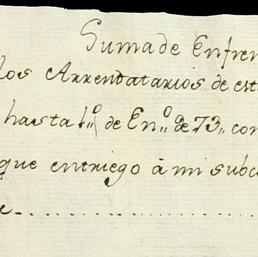 Suma de Enfren
los Arrendatarios de est
hasta 1.º de En.º de 73,, con
que entriego à mi subc
e